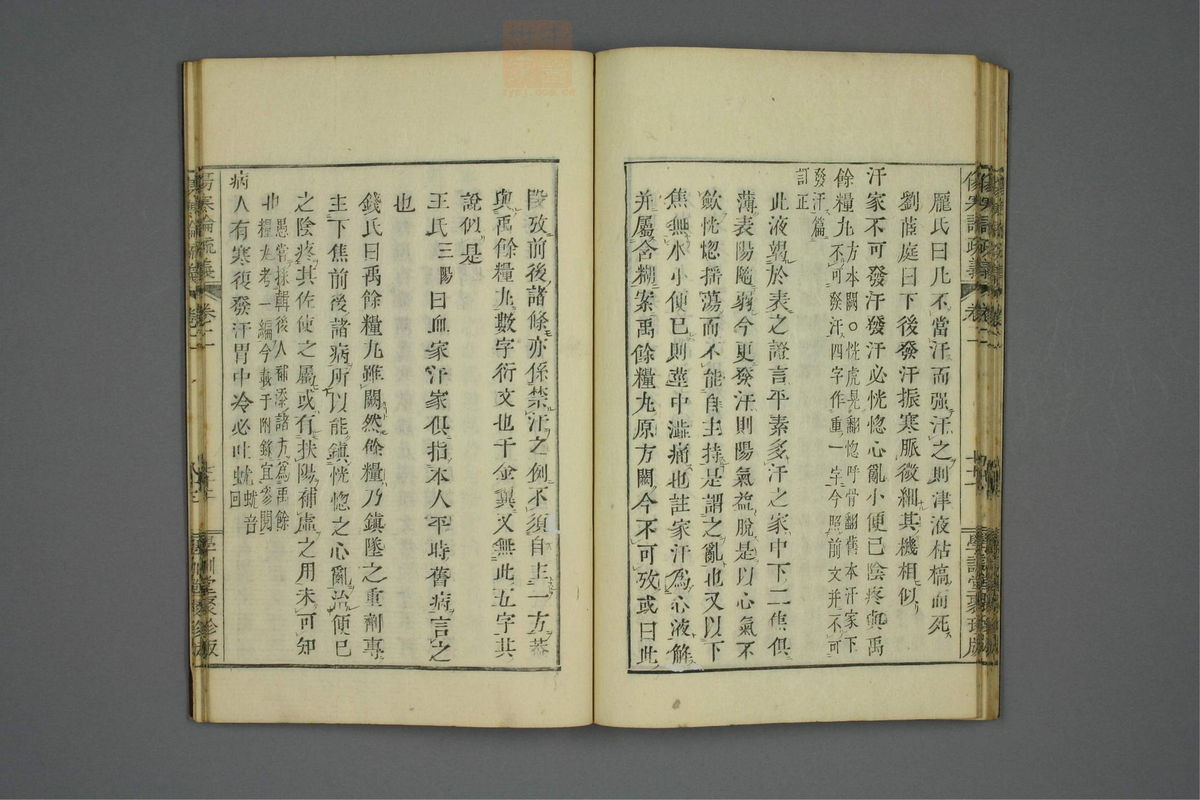 龐氏曰凡不當汗而强汗之則津液枯槁而死
劉蓗庭曰下後發汗振寒脈微細其機相似
汗家不可發汗發汗必恍惚心亂小便已陰疼與禹
餘糧丸方本闕○恍虎晃翻惚呼骨翻舊本汗家下
不可發汗四字作重一字今照前文并不可
發汗篇
訂正
此液竭於表之證言平素多汗之家中下二焦俱
薄表陽隨弱今更發汗則陽氣益脫是以心氣不
歛恍惚搖蕩而不能自主持是謂之亂也又以下
焦無水小便已則莖中澁痛也註家汗為心液解
并屬含糊案禹餘糧丸原方闕今不可攷或曰此
段攷前後諸條亦係禁汗之例不須自主一方葢
與禹餘糧丸數字衍文也千金翼又無此五字其
說似是
王氏三陽曰血家汗家俱指本人平時舊病言之
也
錢氏曰禹餘糧丸雖闕然餘糧乃鎮墜之重劑專
主下焦前後諸病所以能鎮恍惚之心亂治便已
之陰疼其佐使之屬或有扶陽補虛之用未可知
也愚嘗採輯後人補添諸方為禹餘
糧丸考一編今載于附錄宜參閱
病人有寒復發汗胃中冷必吐蚘蚘音
回
傷寒論疏義
卷二
學訓堂聚珍版